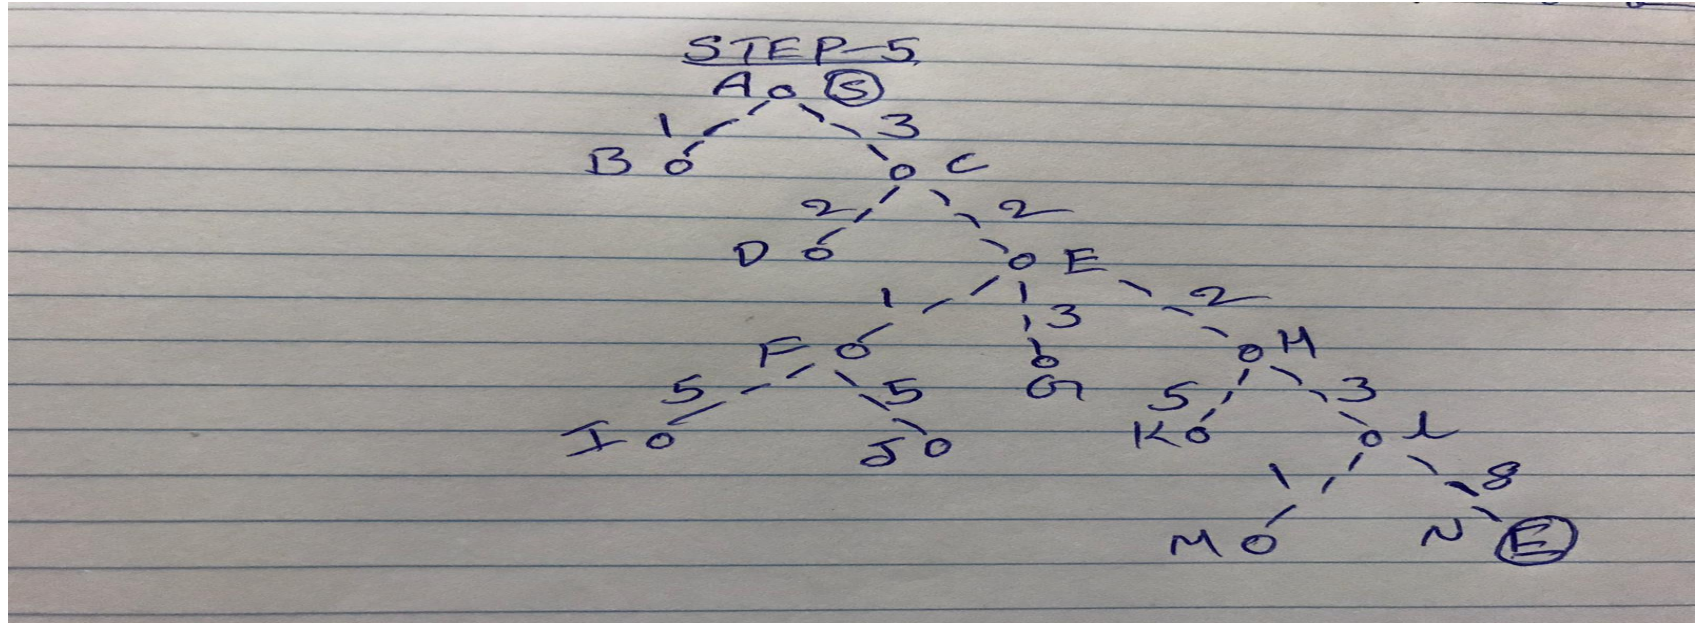 STEP-5
A S
1 3
B C
2 2
D E
1 3 2
F G H
5 5 5 3
I J K L
1 8
M N E